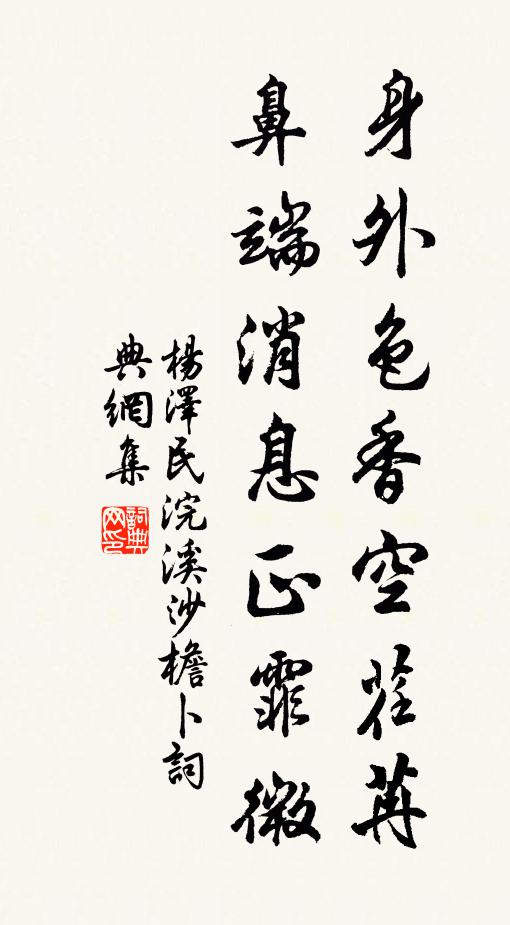 身外色香空荏苒
鼻端消息正霏微
楊澤民浣溪沙檐卜詞
典網集
詞典網印